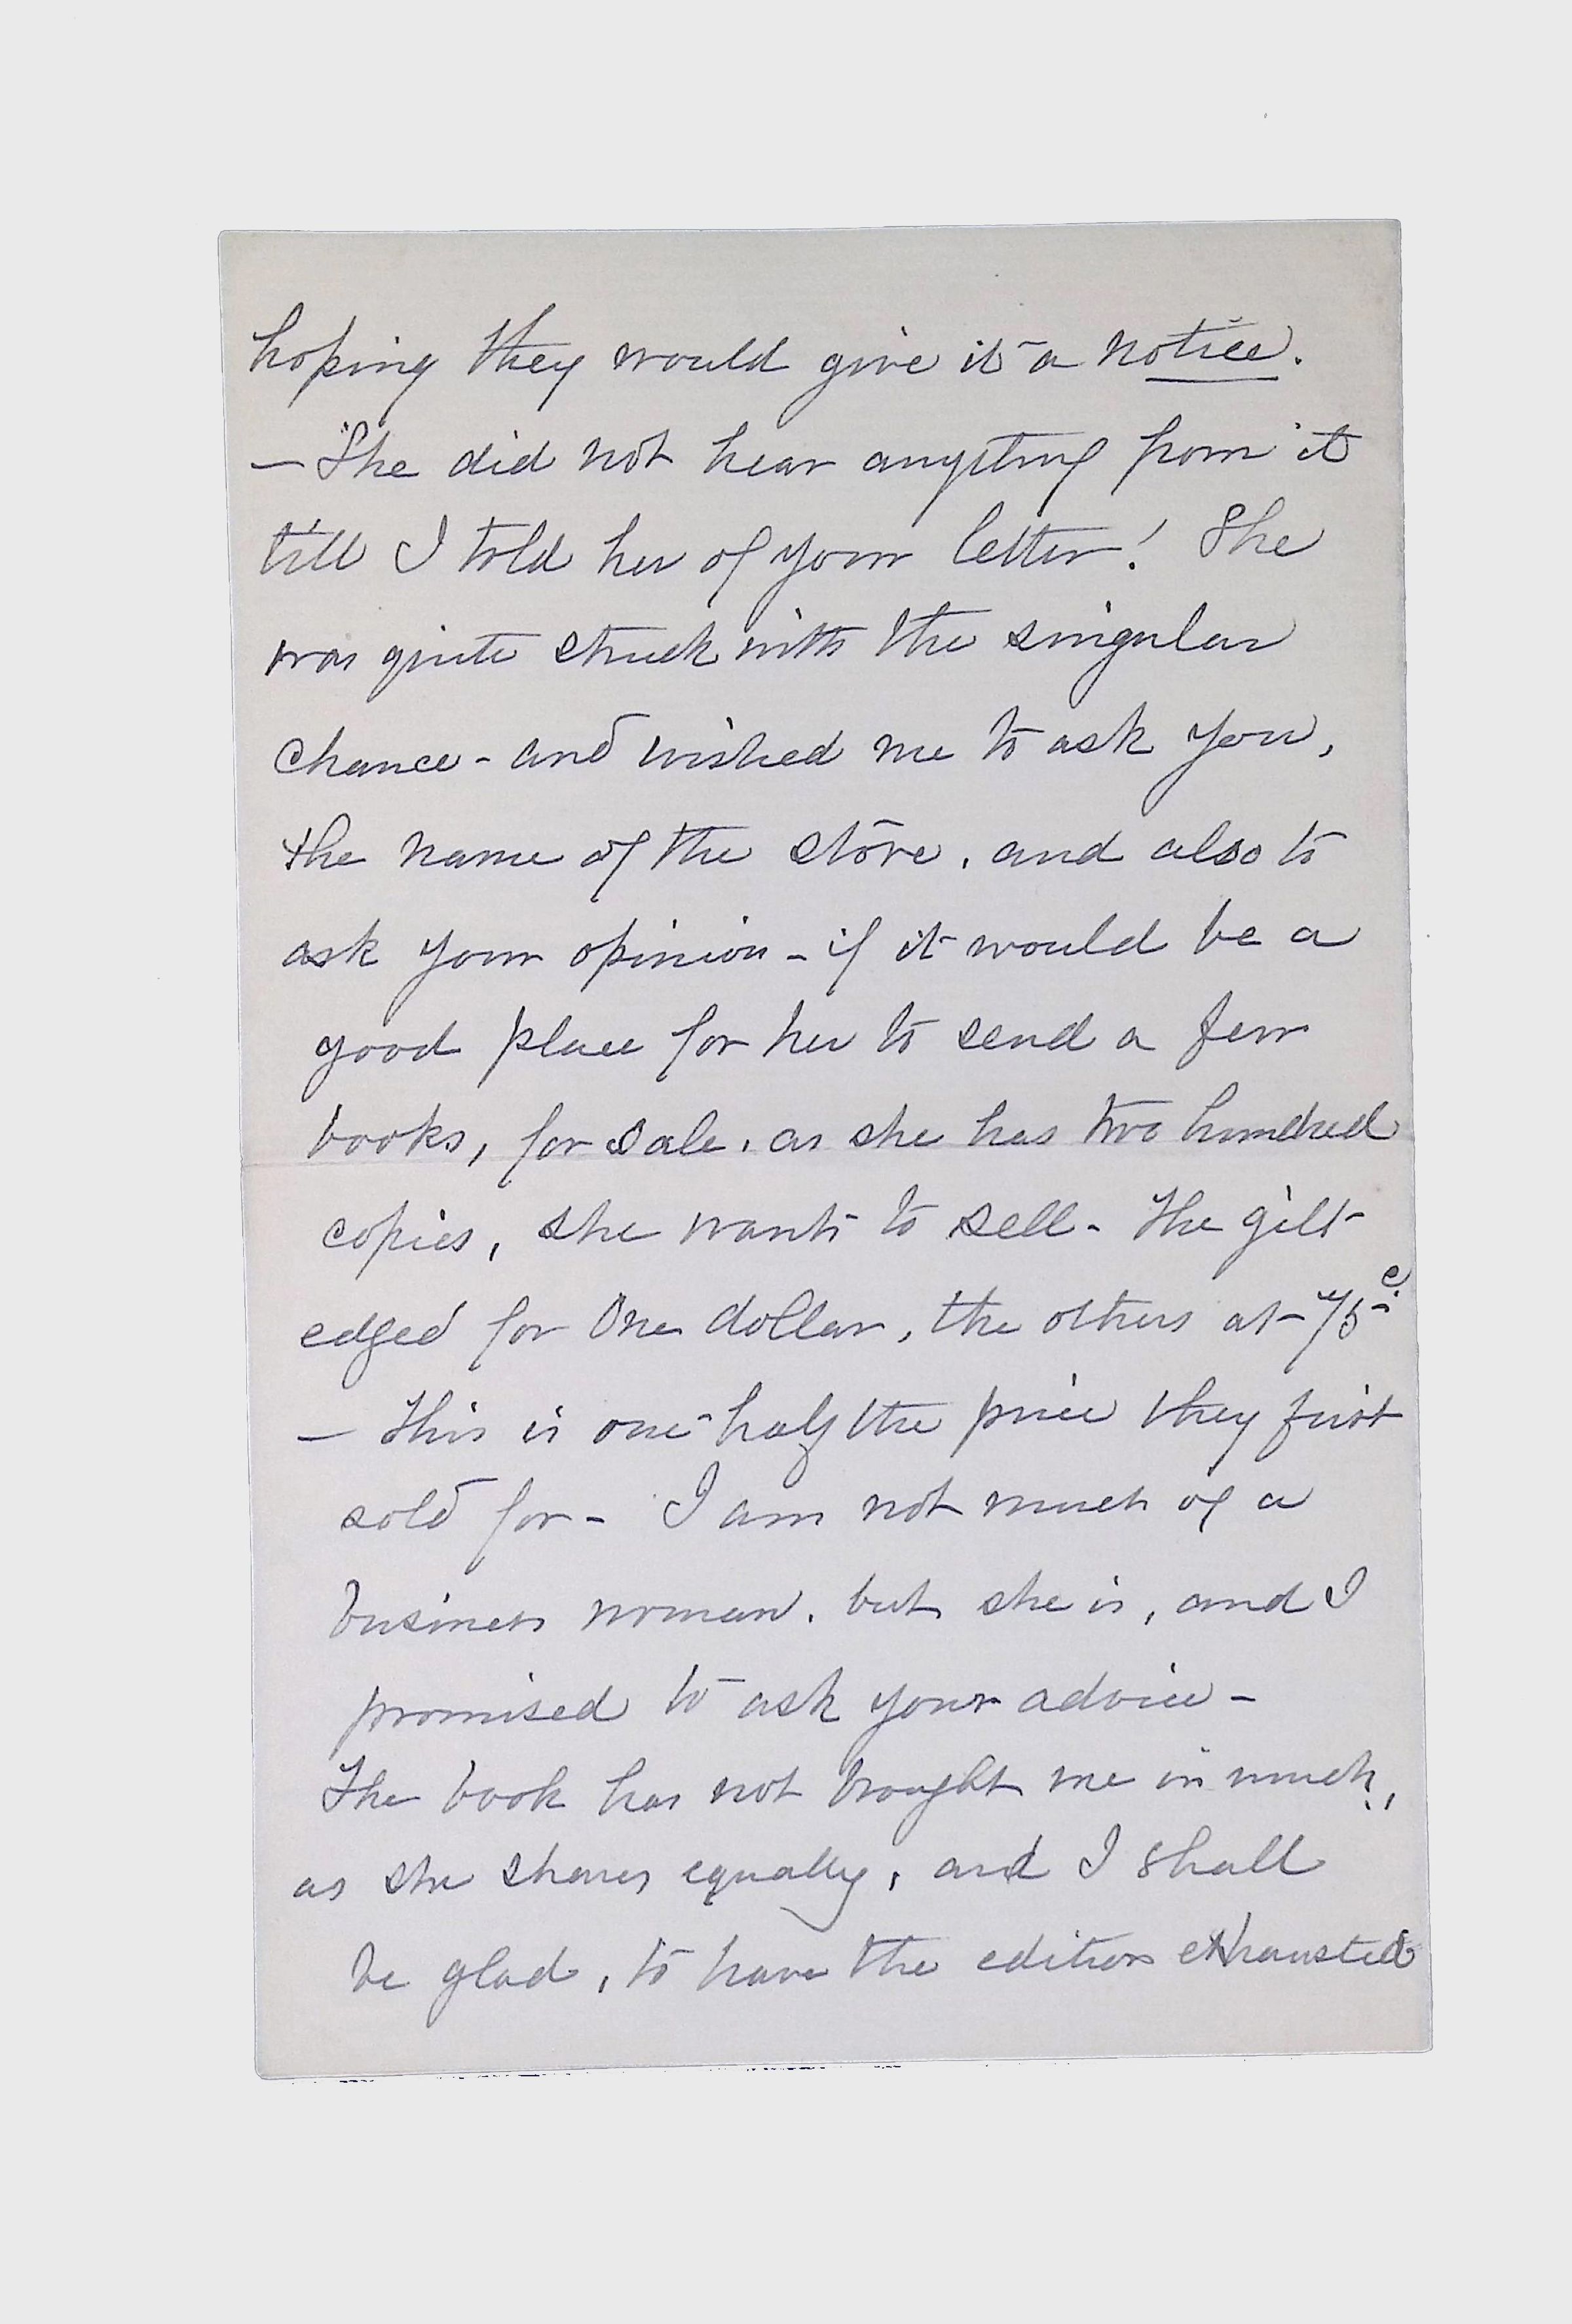 hoping they would give it a notice.
— She did not hear anything from it
till I told her of your letter! She
was quite struck with the singular
chance - and wished me to ask you,
the name of the store, and also to
ask your opinion - if it would be a
good place for her to send a few
books, for sale, as she has two hundred
copies, she wants to sell - The gilt
edged for One dollar, the others at 75c
— This is one-half the price they first
sold for - I am not much of a
business woman, but she is, and I
promised to ask your advice -
The book has not brought me in much,
as she shares equally, and I shall
be glad, to have the edition exhausted